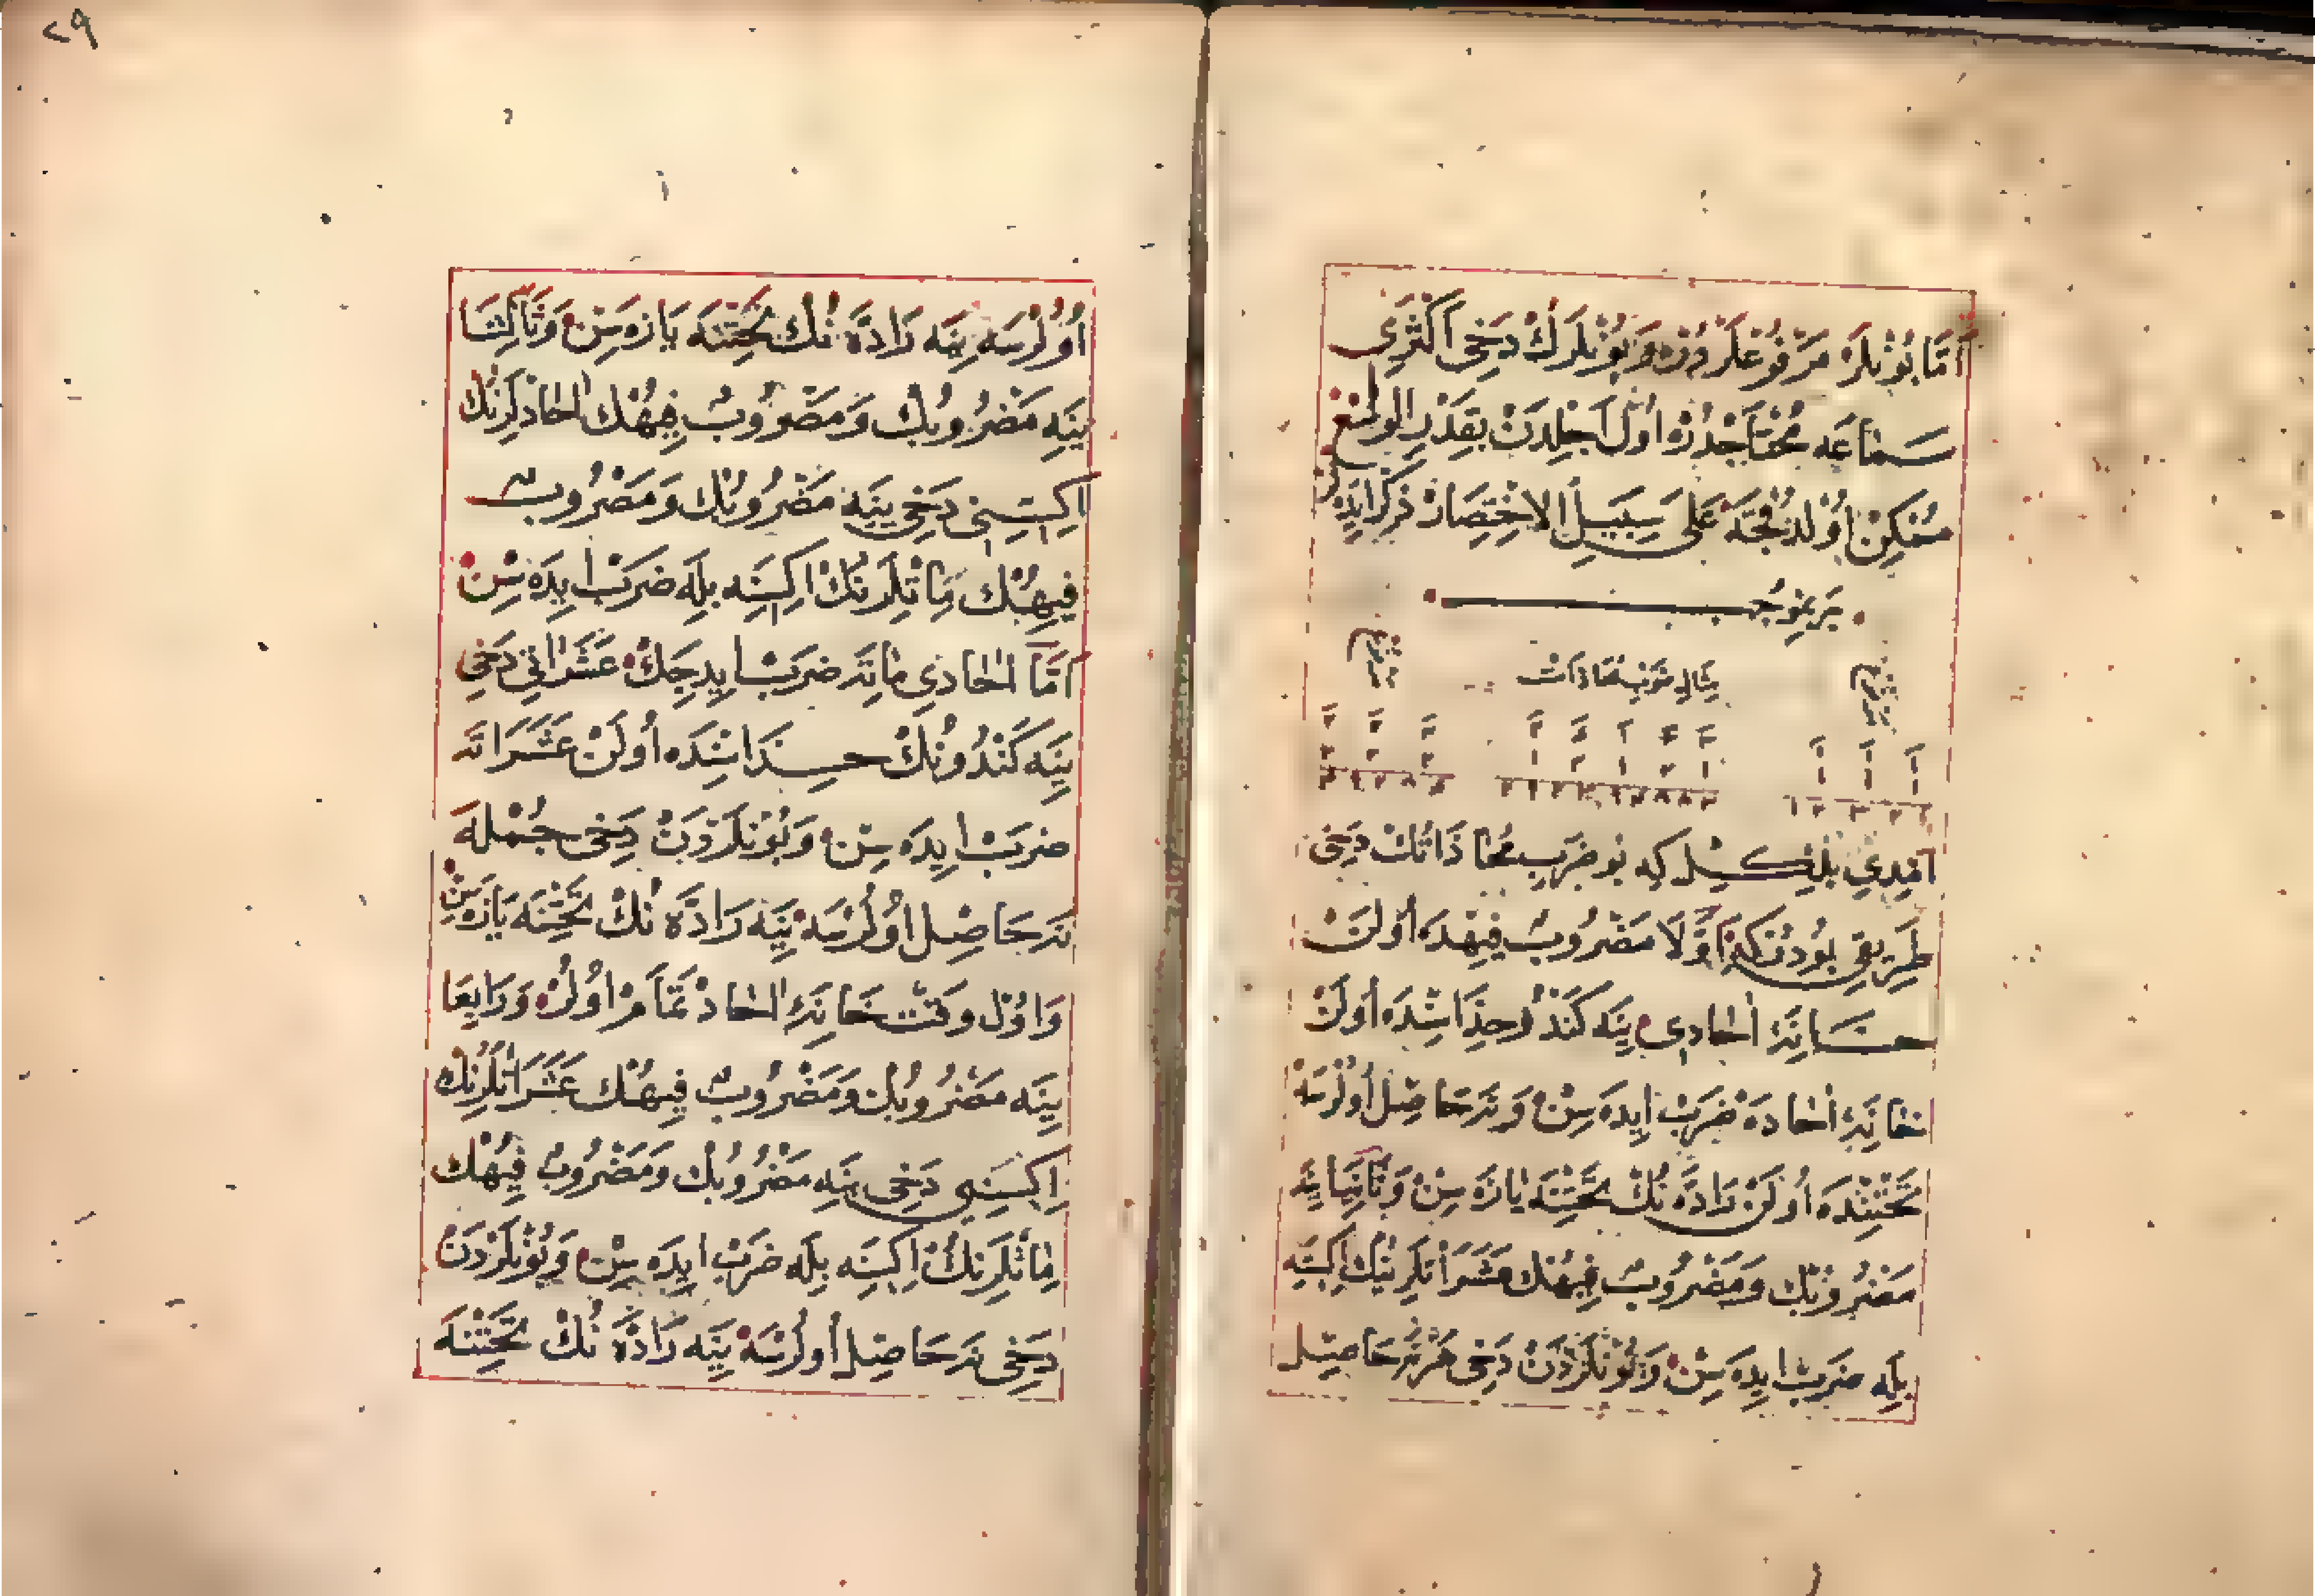 اَمَّا بُونْلَرْ مَرْفُوعْلَرْدُرْ وَبُونْلَرِكْ دَخِى اَكْثَرِى
سَمَاعَه مُحْتَاجْدُرْ اُولْ اَجْلِدَنْ بِقَدْرِ الوسْع
مُمْكِنْ اُولْدُقْجَه عَلَى سَبِيلِ الاِخْتِصَارْ ذِكْر ايدَه لُرْ
مِثَالِ ضَرْبِ مُحَاذَاتْ
اِمْدِى بِلْكِلْ كِه بُو ضَرْبِ مُحَاذَاتُكْ دَخِى
طَرِيقِى بُودُرْكِه اَوَّلَا مَضْرُوبٌ فِيهْدَه اُولَنْ
خَانَۀِ اٰحَادِى يِنَه كَنْدُو حِذَاسِنْدَه اُولَنْ
خَانَۀِ اٰحَادَه ضَرْبْ ايدَه سِنْ وَنَه حَاصِلْ اُولُرْسَه
تَحْتِنْدَه اُولَنْ رَادَّه نُكْ تَحْتِنَه يَازَه سِنْ وَثَانِيًا يِنَه
مَضْرُوبُكْ وَمَضْرُوبٌ فِيهُكْ عَشَرَاتْلَرِنُكْ اِكِيسِنَه
بِلَه ضَرْبْ ايدَه سِنْ وَبُونْلَرْدَنْ دَخِى هَرْ نَه حَاصِلْ
٢٩
اُولُرْسَه يِنَه رَادَّه نُكْ تَحْتِنَه يَازَه سِنْ وَثَالِثًا
يِنَه مَضْرُوبُكْ وَمَضْرُوبٌ فِيهُكْ اٰحَادْلَرِنُكْ
اِكِيسِنِى دَخِى يِنَه مَضْرُوبُكْ وَمَضْرُوبٌ
فِيهُكْ مِآتْلَرِنُكْ اِكِيسِنَه بِلَه ضَرْبْ ايدَه سِنْ
اَمَّا اٰحَادِى مِآتَه ضَرْبْ ايدِجَكْ عَشَرَاتِى دَخِى
يِنَه كَنْدُونُكْ حِذَاسِنْدَه اُولَنْ عَشَرَاتَه
ضَرْبْ ايدَه سِنْ وَبُونْلَرْدَنْ دَخِى جُمْلَه
نَه حَاصِلْ اُولُرْسَه يِنَه رَادَّه نُكْ تَحْتِنَه يَازَه سِنْ
وَاُولْ وَقْتْ خَانَۀِ اٰحَادْ تَمَامْ اُولُرْ وَرَابِعًا
يِنَه مَضْرُوبُكْ وَمَضْرُوبٌ فِيهُكْ عَشَرَاتْلَرِنُكْ
اِكِيسِنِى دَخِى يِنَه مَضْرُوبُكْ وَمَضْرُوبٌ فِيهُكْ
مِآتْلَرِنُكْ اِكِيسِنَه بِلَه ضَرْبْ ايدَه سِنْ وَبُونْلَرْدَنْ
دَخِى نَه حَاصِلْ اُولُرْسَه يِنَه رَادَّه نُكْ تَحْتِنَه